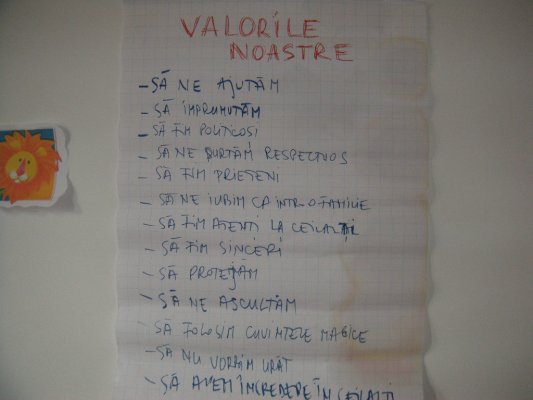 VALORILE
NOASTRE
- SĂ NE AJUTĂM
- SĂ ÎMPRUMUTĂM
- SĂ FIM POLITICOȘI
- SĂ NE PURTĂM RESPECTUOS
- SĂ FIM PRIETENI
- SĂ NE IUBIM CA ÎNTR-O FAMILIE
- SĂ FIM ATENȚI LA CEILALȚI
- SĂ FIM SINCERI
- SĂ PROTEJĂM
- SĂ NE ASCULTĂM
- SĂ FOLOSIM CUVINTELE MAGICE
- SĂ NU VORBIM URÂT
- SĂ AVEM ÎNCREDERE ÎN CEILALȚI